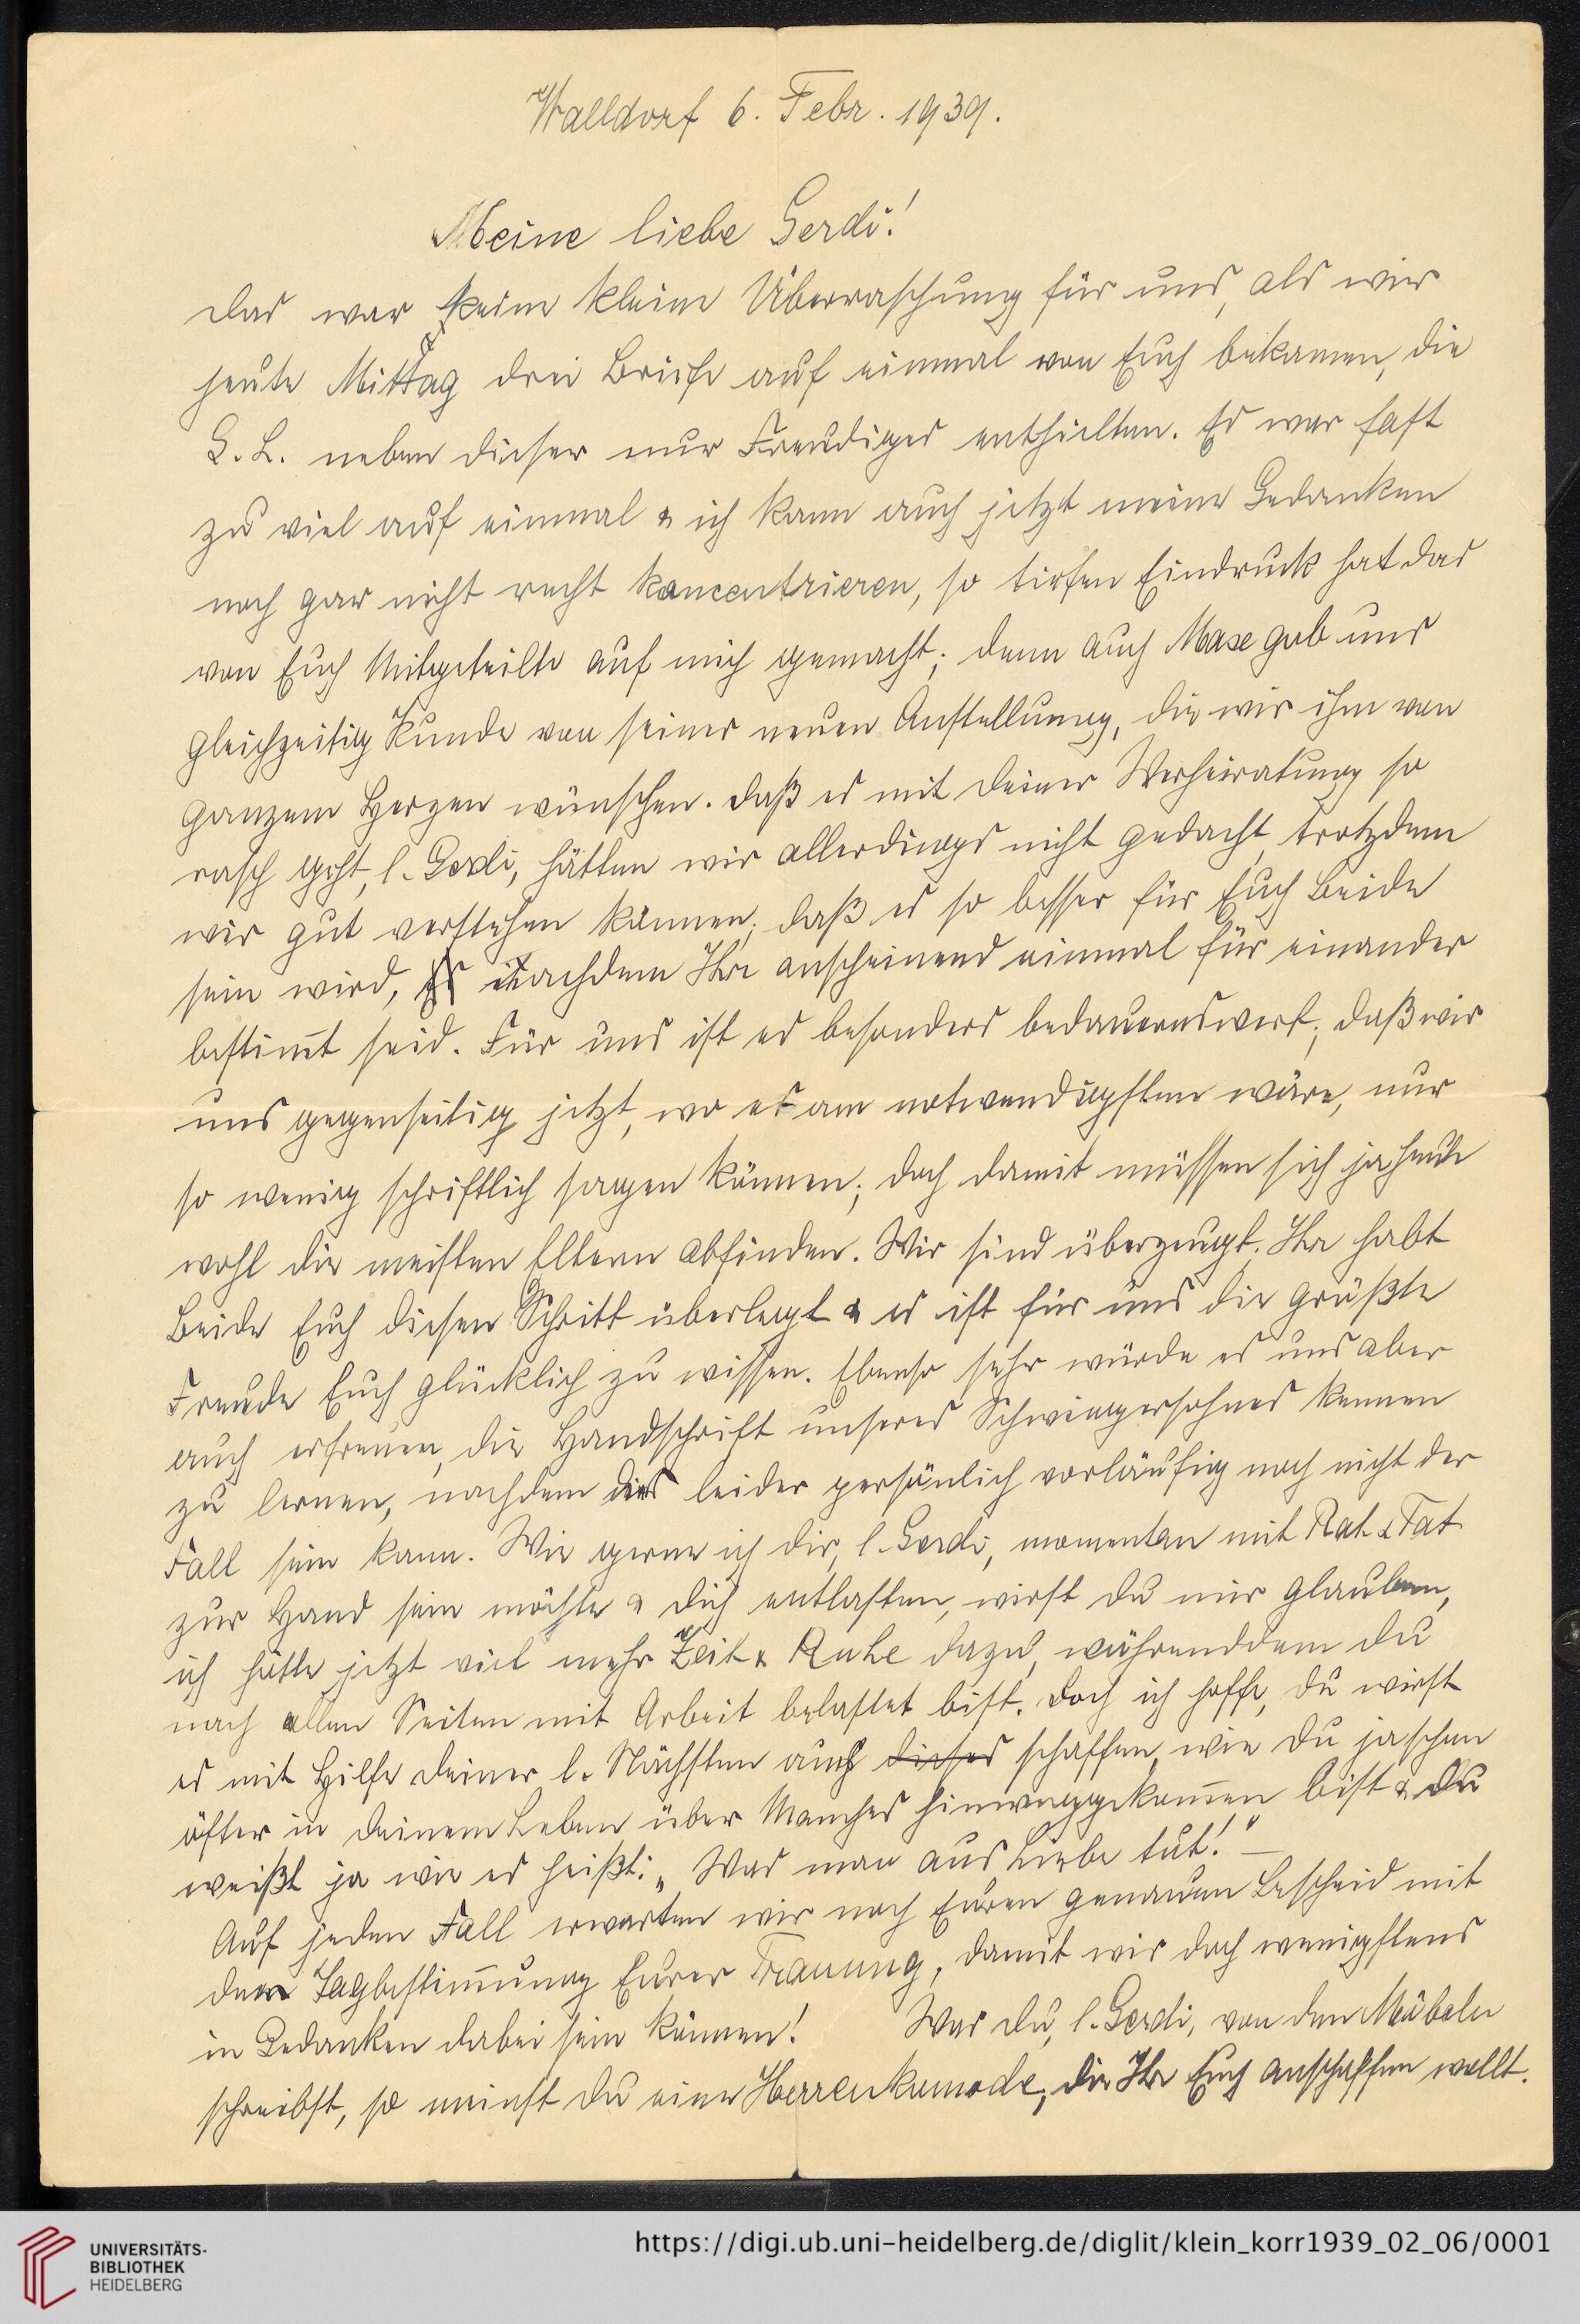 Walldorf 6. Febr. 1939.
Meine liebe Gerdi!
Das war keine kleine Überraschung für uns, als wir
heute Mittag drei Briefe auf einmal von Euch bekamen, die
G. L. neben dieser nur Freudiges enthielten. Es war fast
zu viel auf einmal & ich kann auch jetzt meine Gedanken
noch gar nicht recht koncentrieren, so tiefen Eindruck hat das
von Euch Mitgeteilte auf mich gemacht; denn auch Max gab uns
gleichzeitig Kunde von seiner neuen Anstellung, die wir ihm von
ganzem Herzen wünschen. Daß es mit Deiner Verheiratung so
rasch geht, l. Gerdi, hätten wir allerdings nicht gedacht, trotzdem
wir gut verstehen können, daß es so besser für Euch Beide
sein wird, nachdem Ihr anscheinend einmal für einander
bestim̄t seid. Für uns ist es besonders bedauernswert, daß wir
uns gegenseitig jetzt, wo es am notwendigsten wäre, nur
so wenig schriftlich sagen können; doch damit müssen sich ja heute
wohl die meisten Eltern abfinden. Wir sind überzeugt, Ihr habt
Beide Euch diesen Schritt überlegt & es ist für uns die größte
Freude Euch glücklich zu wissen. Ebenso sehr würde es uns aber
auch erfreuen, die Handschrift unseres Schwiegersohnes kennen
zu lernen, nachdem dies leider persönlich vorläufig noch nicht der
Fall sein kann. Wie gerne ich Dir, l. Gerdi, momentan mit Rat & Tat
zur Hand sein möchte & Dich entlasten, wirst Du mir glauben,
ich hätte jetzt viel mehr Zeit & Ruhe dazu, währenddem Du
nach allen Seiten mit Arbeit belastet bist. Doch ich hoffe, Du wirst
es mit Hilfe Deiner l. Nächsten auch dieses schaffen, wie Du ja schon
öfter in Deinem Leben über Manches hinweggekom̄en bist & Du
weißt ja wie es heißt: „Was man aus Liebe tut!" –
Auf jeden Fall erwarten wir noch Euren genauen Bescheid mit
der Tagbestim̄ung Eurer Trauung, damit wir doch wenigstens
in Gedanken dabei sein können! Was Du, l. Gerdi, von den Möbeln
schreibst, so meinst Du eine Herrenkomode, die Ihr Euch anschaffen wollt.
UNIVERSITÄTS-
BIBLIOTHEK
HEIDELBERG
https://digi.ub.uni-heidelberg.de/diglit/klein_korr1939_02_06/0001